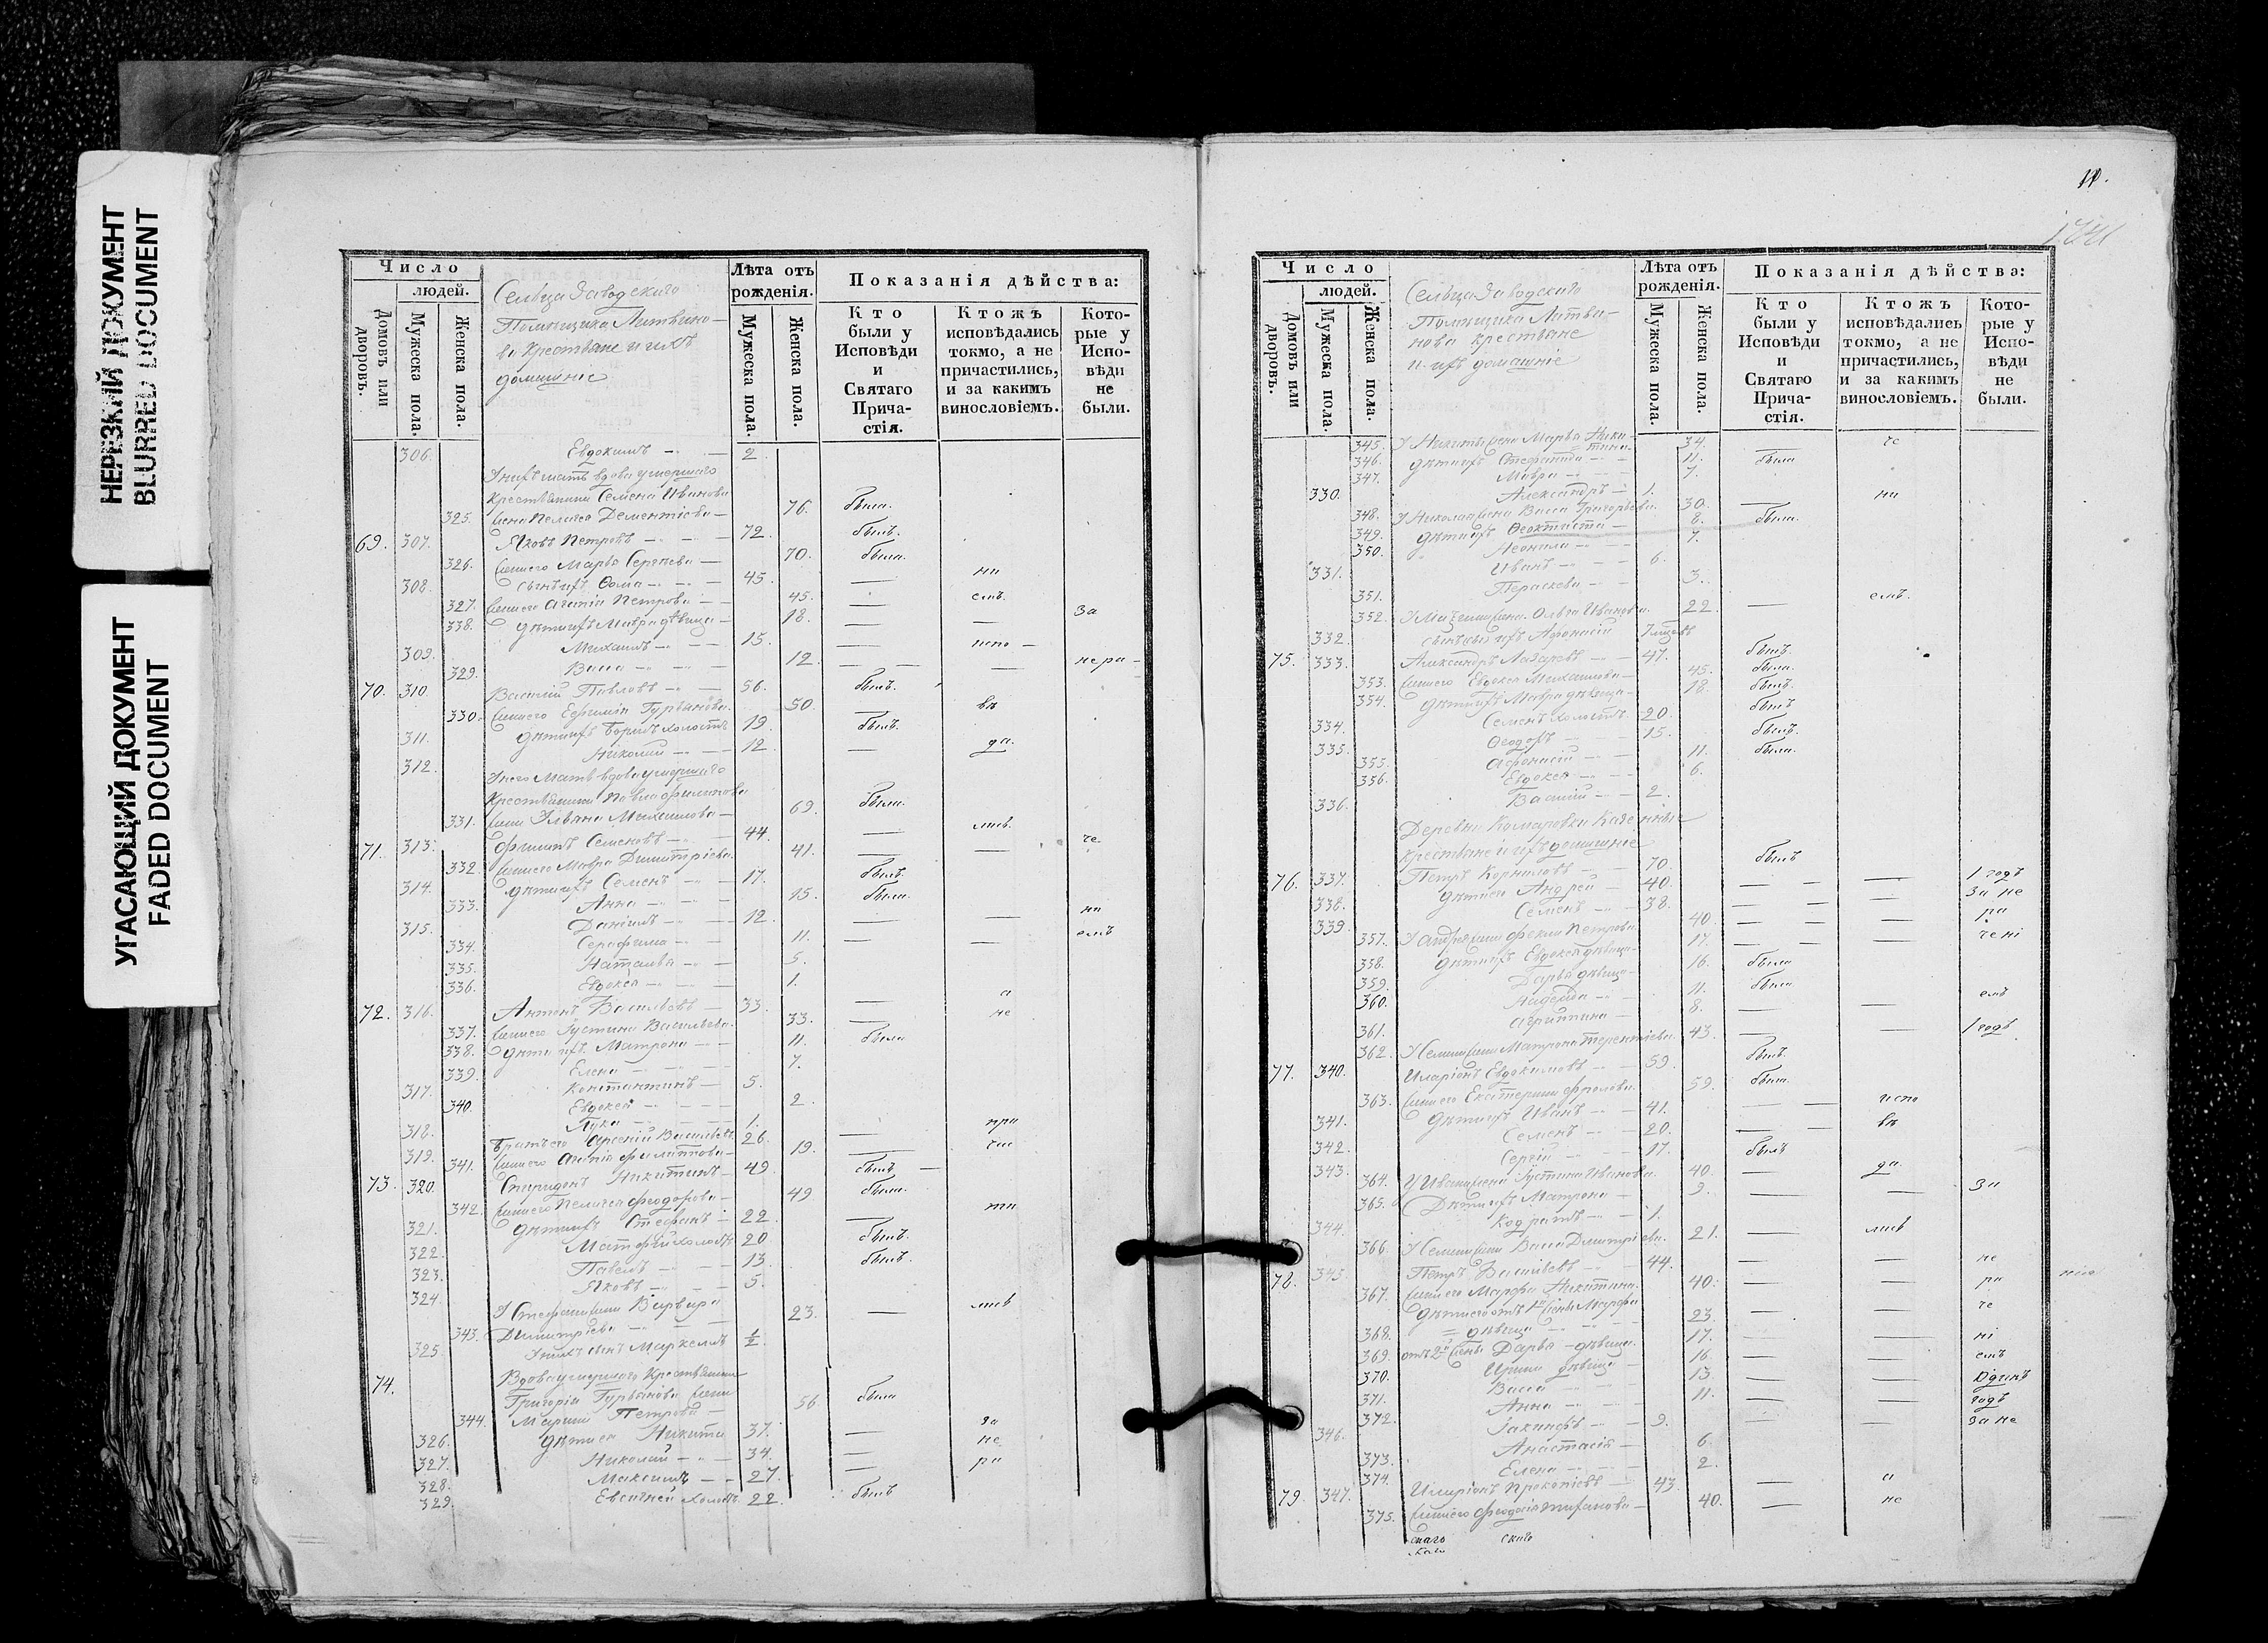 НЕРІЗКИЙ ДОКУМЕНТ
BLURRED DOCUMENT
УГАСАЮЩИЙ ДОКУМЕНТ
FADED DOCUMENT
Число
людей.
Домовъ или дворовъ.
Мужеска пола.
Женска пола.
Сельца Заводскаго
Помѣщика Литвино-
ва крестьяне и ихъ
домашніе
Лѣта отъ рожденія.
Мужеска пола.
Женска пола.
Показанія дѣйства:
Кто были у Исповѣди и Святаго Прича-стія.
Ктожъ исповѣдались токмо, а не причастились, и за какимъ винословіемъ.
Кото-рые у Испо-вѣди не были.
306. Евдокимъ 2.
У нихъ мать вдова умершаго
крестьянина Семена Иванова
325. Пелагея Дементіева 76. была.
69. 307. Яковъ Петровъ 72. былъ.
326. Жена его Марья Сергѣева 70. была.
308. Сынъ ихъ Ѳома 45. на
327. Жена его Агапія Петрова 45. емъ.
338. Дѣти ихъ Мавра дѣвица 18. За
309. Михаилъ 15. испо
329. Васса 12. нера-
70. 310. Василій Павловъ 56. былъ.
330. Жена его Евфимія Гурьянова 50. въ
311. Дѣти ихъ Борисъ холостъ 19. былъ.
312. Николай 12. да.
У него мать вдова умершаго
крестьянина Павла Филипова
331. Жена Ульяна Михаилова 69. была.
71. 313. Филипъ Семеновъ 44. лѣв. че
332. Жена его Мавра Димитріева 41.
314. Дѣти ихъ Семенъ 17. былъ.
333. Анна 15. была.
315. Даніилъ 12. на
334. Серафима 11. емъ
335. Наталья 5.
336. Евдокея 1.
72. 316. Антонъ Васильевъ 33. а
337. Жена его Іустина Васильева 33. не
338. Дѣти ихъ Матрона 11. была
339. Елена 7.
317. Константинъ 5.
340. Евдокея 2.
318. Лука 1. при
319. Братъ его Арсеній Васильевъ 26. час
341. Жена его Агапія Филиппова 19.
73. 320. Спиридонъ Никитинъ 49. былъ
342. Жена его Пелагея Феодорова 49 была.
321. Дѣти ихъ Стефанъ 22. ти
322. Матфій холостъ 20 былъ.
323. Павелъ 13. былъ.
324. Яковъ 5.
У Стефана жена Варвара
343. Димитріева 23.
325. У нихъ сынъ Маркелъ ½.
74. Вдова умершаго крестьянина
Григорія Гурьянова жена
344. Марина Петрова 56 была
326. Дѣти ея Никита 37. за
327. Николай 34. не
328. Максимъ 27. ра
329. Евгеней холостъ 22. былъ
Число
людей.
Домовъ или дворовъ.
Мужеска пола.
Женска пола.
Сельца Заводскаго
Помѣщика Литви-
нова крестьяне
и ихъ домашніе
Лѣта отъ рожденія.
Мужеска пола.
Женска пола.
Показанія дѣйства:
Кто были у Исповѣди и Святаго Прича-стія.
Ктожъ исповѣдались токмо, а не причастились, и за какимъ винословіемъ.
Кото-рые у Испо-вѣди не были.
345. У Никиты жена Марья Ники-тина 34. че
346. Дѣти ихъ Стефанида 11. была
347. Мавра 7.
330. Александръ 1. ни
348. У Николая жена Васса Григорьева 30.
349. Дѣти ихъ Ѳеоктиста 8. была.
350. Неонила 7.
331. Иванъ 6.
351. Параскева 3.
352. У Максима жена Ольга Иванова 22. емъ.
332. Сынъ ихъ Афонасій
75. 333. Александръ Лазаревъ 47. былъ.
353. Жена его Евдокея Михаилова 45. была.
354. Дѣти ихъ Мавра дѣвица 18. былъ.
334. Семенъ холостъ 20. былъ
335. Ѳеодоръ 15. былъ.
355. 11. была.
356. Евдокея 6.
336. Василій 2.
Деревни Комаровки казенные
крестьяне и ихъ домашніе
76. 337. Петръ Корниловъ 70. былъ
338. Дѣти его Андрей 40. 1 годъ
339. Семенъ 38. За не
357. У Андрея жена Фекла Петрова 40 ра
358. Дѣти ихъ Евдокея дѣвица 17. чені
359. Дарья дѣвица 16. была
360. Надежда 11. была
361. Агриппина 8. емъ
362. У Семена жена Матрона Терентіева 43. 1 годъ
77. 340. Иларіонъ Евдокимовъ 59. былъ.
363. Жена его Екатерина Фролова 59. была.
341. Дѣти ихъ Иванъ 41. испо
342. Семенъ 20. въ
343. Сергій 17. былъ
364. У Ивана жена Іустина Иванова 40. да.
365. Дѣти ихъ Матрона 9. За
344. Кодратъ 1.
366. У Семена жена Васса Димитріева 21.
78. 345. Петръ Васильевъ 44. не
367. Жена его Марфа Никитина 40. ра
Дѣти его отъ 1й жены Марфа
368. дѣвица 23. че
369. отъ 2й жены Дарья дѣвица 17. ні
370. Ирина дѣвица 16. емъ
371. Васса 13. Одинъ
372. Анна 11. годъ
346. Іакинфъ 9. За не
373. Анастасія 6.
374. Елена 2.
79. 347. Иларіонъ Прокопіевъ 43. а
375. Жена его Феодосія 40. не